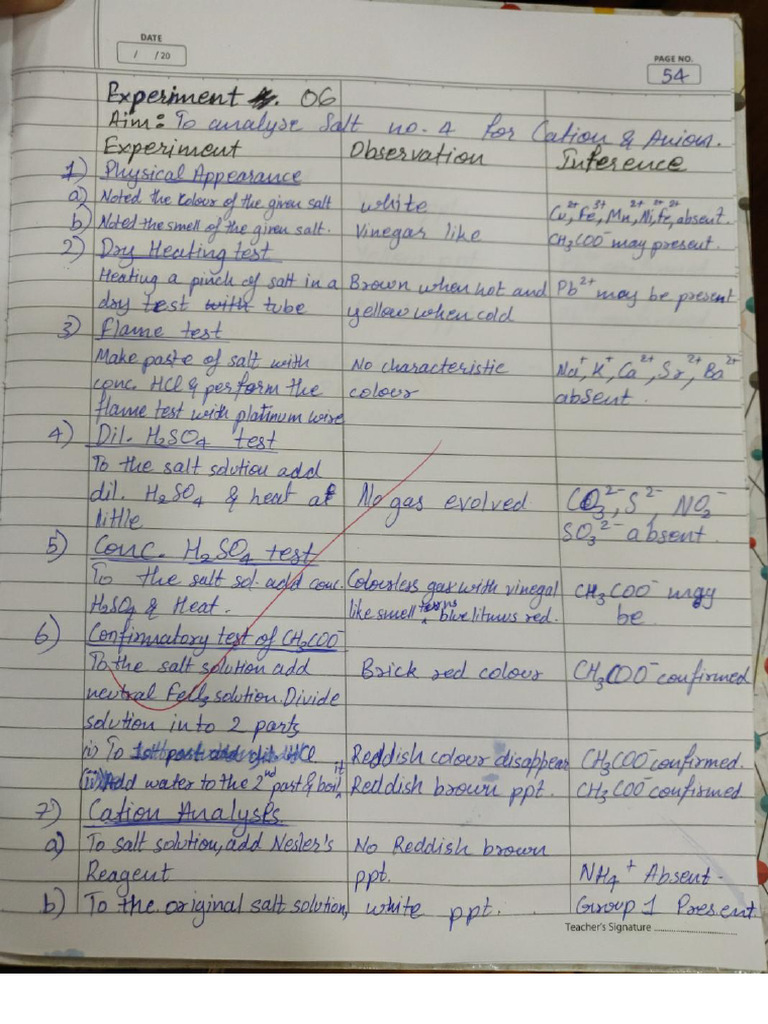 DATE
/ /20
PAGE NO.
54
Experiment 06
Aim: To analyse Salt no. 4 for Cation & Anion.
Experiment Observation Inference
1) Physical Appearance
a) Noted the colour of the given salt white Cu²⁺, Fe³⁺, Mn²⁺, Ni²⁺, Fe²⁺, absent.
b) Noted the smell of the given salt. Vinegar like CH₃COO⁻ may present.
2) Dry Heating test
Heating a pinch of salt in a Brown when hot and Pb²⁺ may be present
dry test with tube yellow when cold
3) Flame test
Make paste of salt with No characteristic Na⁺, K⁺, Ca²⁺, Sr²⁺, Ba²⁺
conc. HCl & perform the colour absent.
flame test with platinum wire
4) Dil. H₂SO₄ test
To the salt solution add
dil. H₂SO₄ & heat a No gas evolved CO₃²⁻, S²⁻, NO₂⁻
little SO₃²⁻ absent.
5) Conc. H₂SO₄ test
To the salt sol. add conc. Colourless gas with vinegal CH₃COO⁻ may
H₂SO₄ & Heat. like smell turns blue litmus red. be
6) Confirmatory test of CH₃COO⁻
To the salt solution add Brick red colour CH₃COO⁻ confirmed
neutral FeCl₃ solution. Divide
solution into 2 parts
(i) To 1st part add dil. HCl Reddish colour disappear CH₃COO⁻ confirmed.
(ii) Add water to the 2nd part & boil it Reddish brown ppt. CH₃COO⁻ confirmed
7) Cation Analyses.
a) To salt solution, add Nesler's No Reddish brown
Reagent ppt. NH₄⁺ Absent.
b) To the original salt solution, white ppt. Group 1 Present
Teacher's Signature